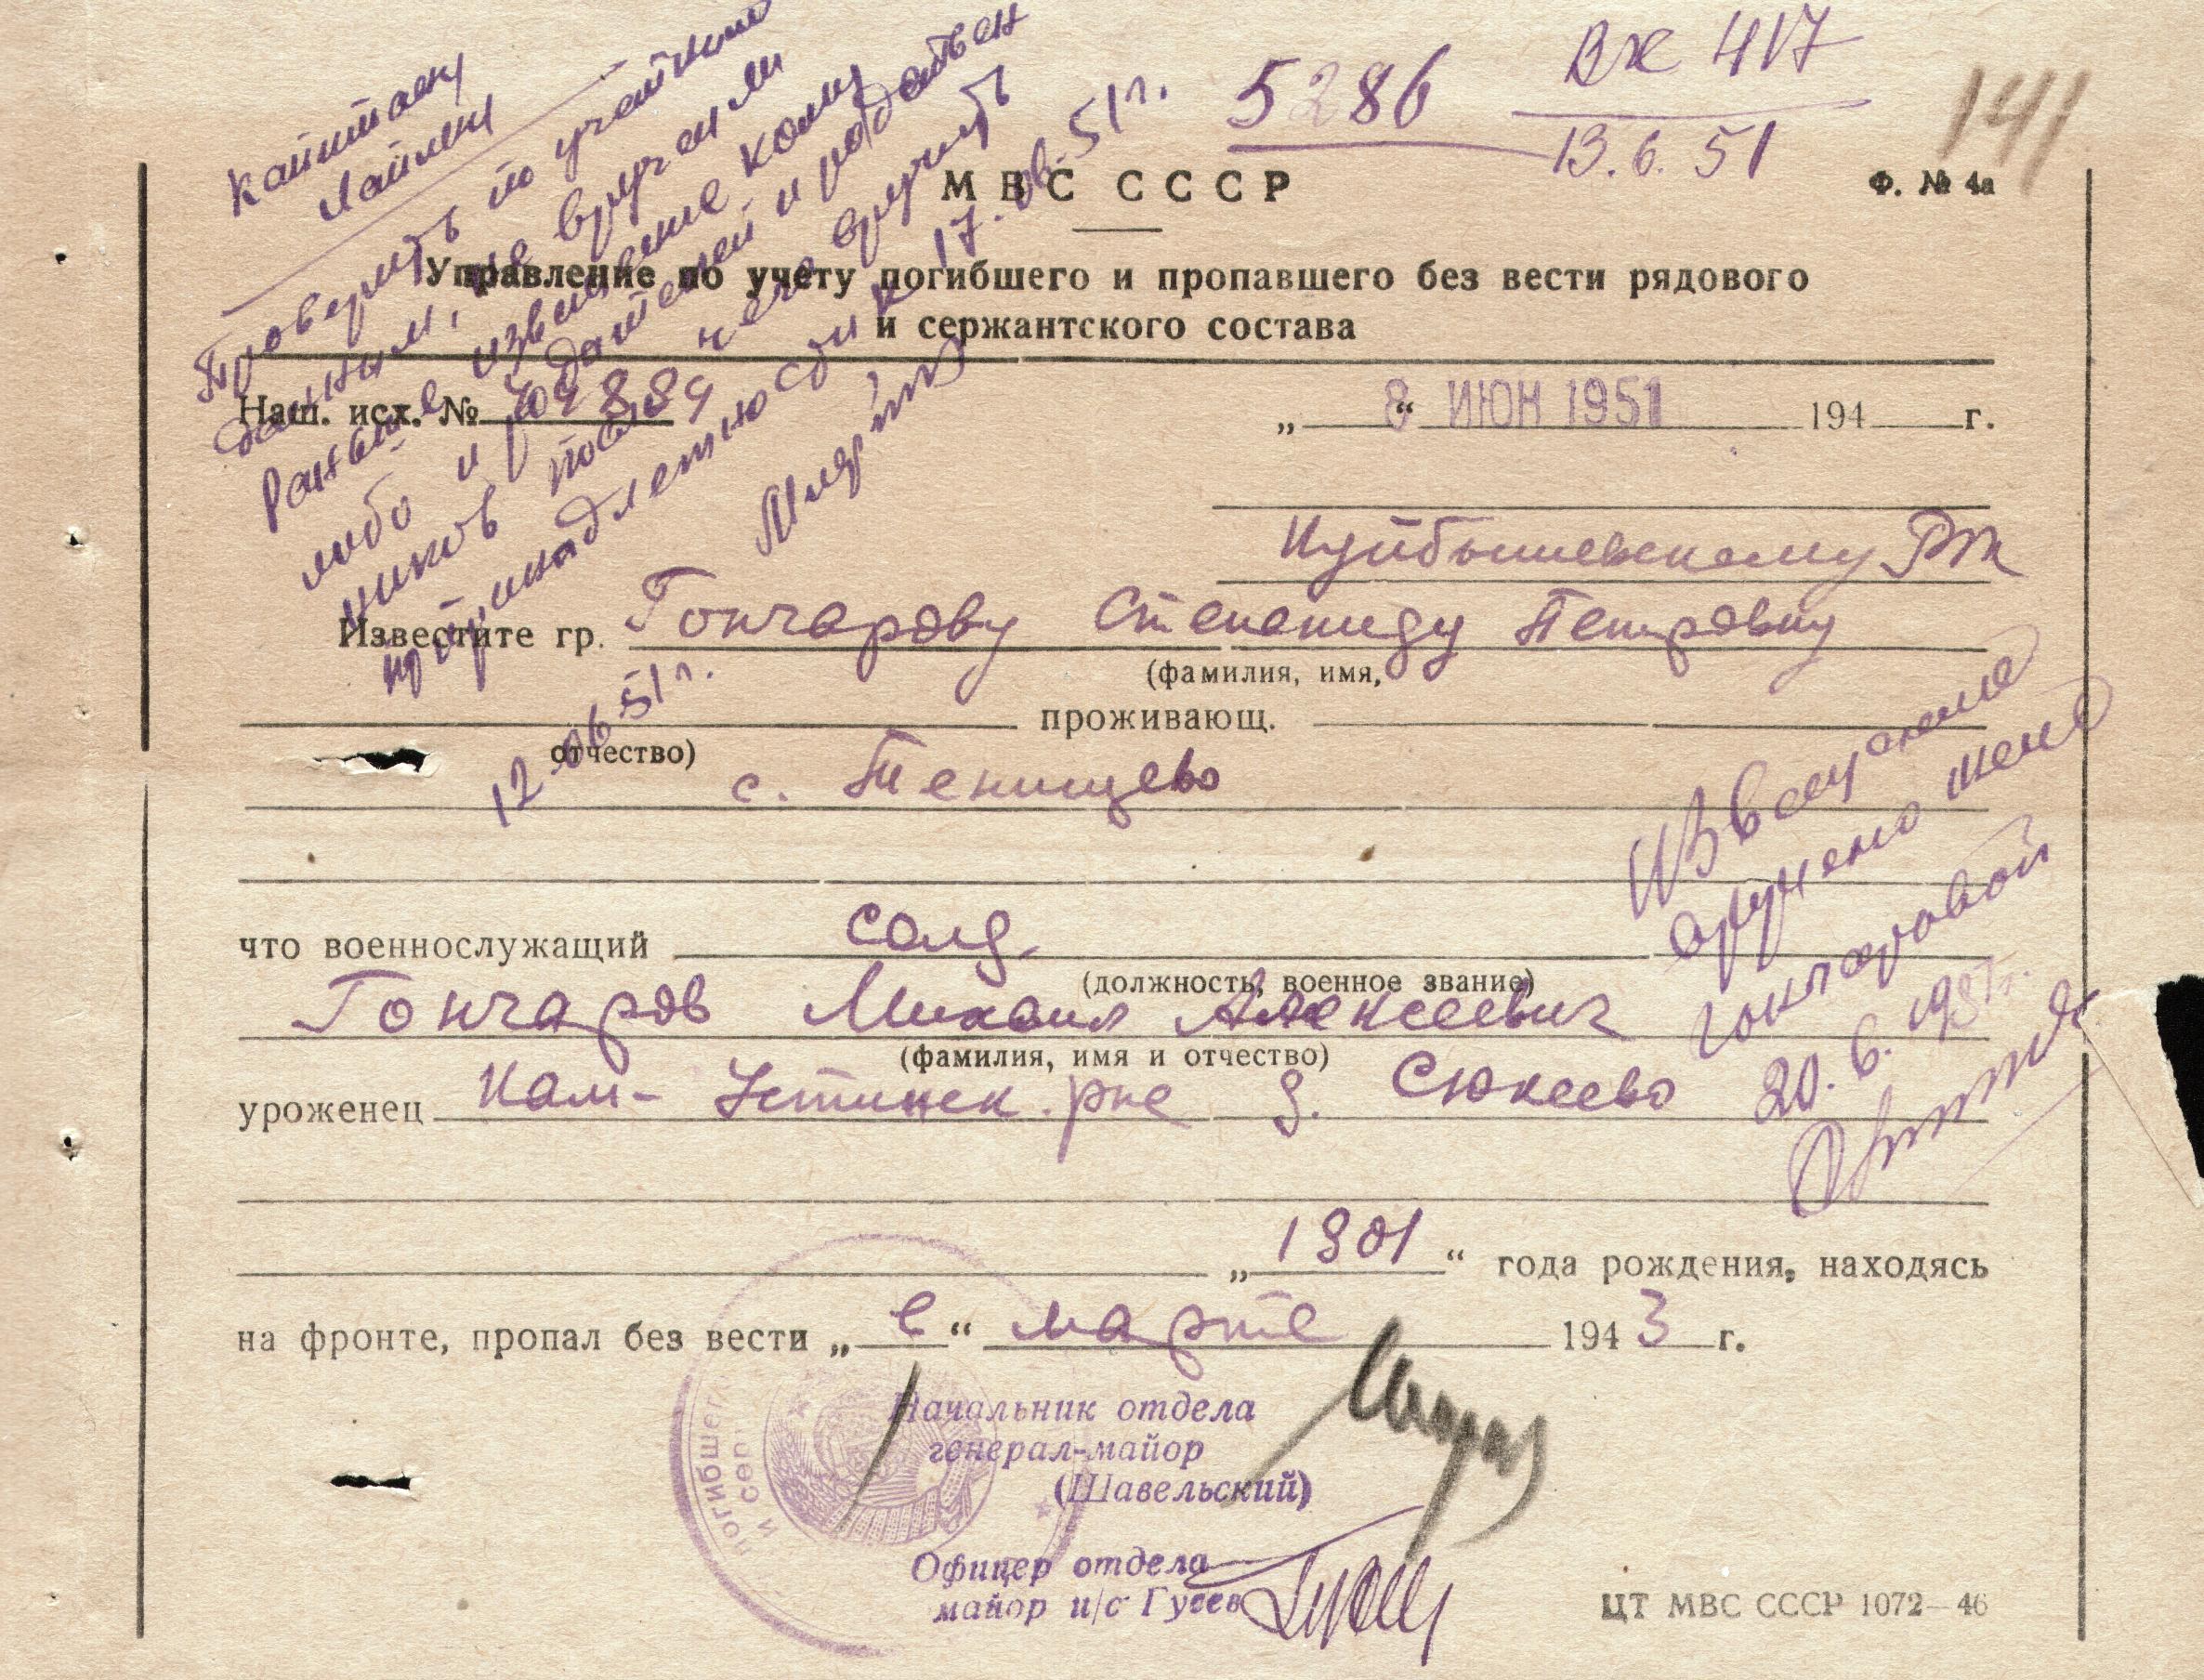 капитану
Лайкину
Проверить по учетным
данным, не вручен ли
раньше извещение кому
либо из родителей и родствен
ников после чего вручить
по принадлежности
к 17.06.51 г.
12.06.51 г.
5286
Вх 417
13.6.51
141
МВС СССР
Ф. № 4а
Управление по учету погибшего и пропавшего без вести рядового
и сержантского состава
Наш. исх. № 709889
„8“ ИЮН 1951 194 г.
Куйбышевскому РВК
Известите гр. Гончарову Степаниду Петровну
(фамилия, имя,
проживающ.
отчество)
с. Тенищево
что военнослужащий солд.
(должность, военное звание)
Гончаров Михаил Алексеевич
(фамилия, имя и отчество)
уроженец Кам-Устинск. рне д. Сюкеево
„1901“ года рождения, находясь
на фронте, пропал без вести „в“ марте 1943 г.
Извещение
вручено жене
Гончаровой
20.6.1951г.
погибшего
и сер
Начальник отдела
генерал-майор
(Шавельский)
Офицер отдела
майор и/с Гусев
ЦТ МВС СССР 1072—46